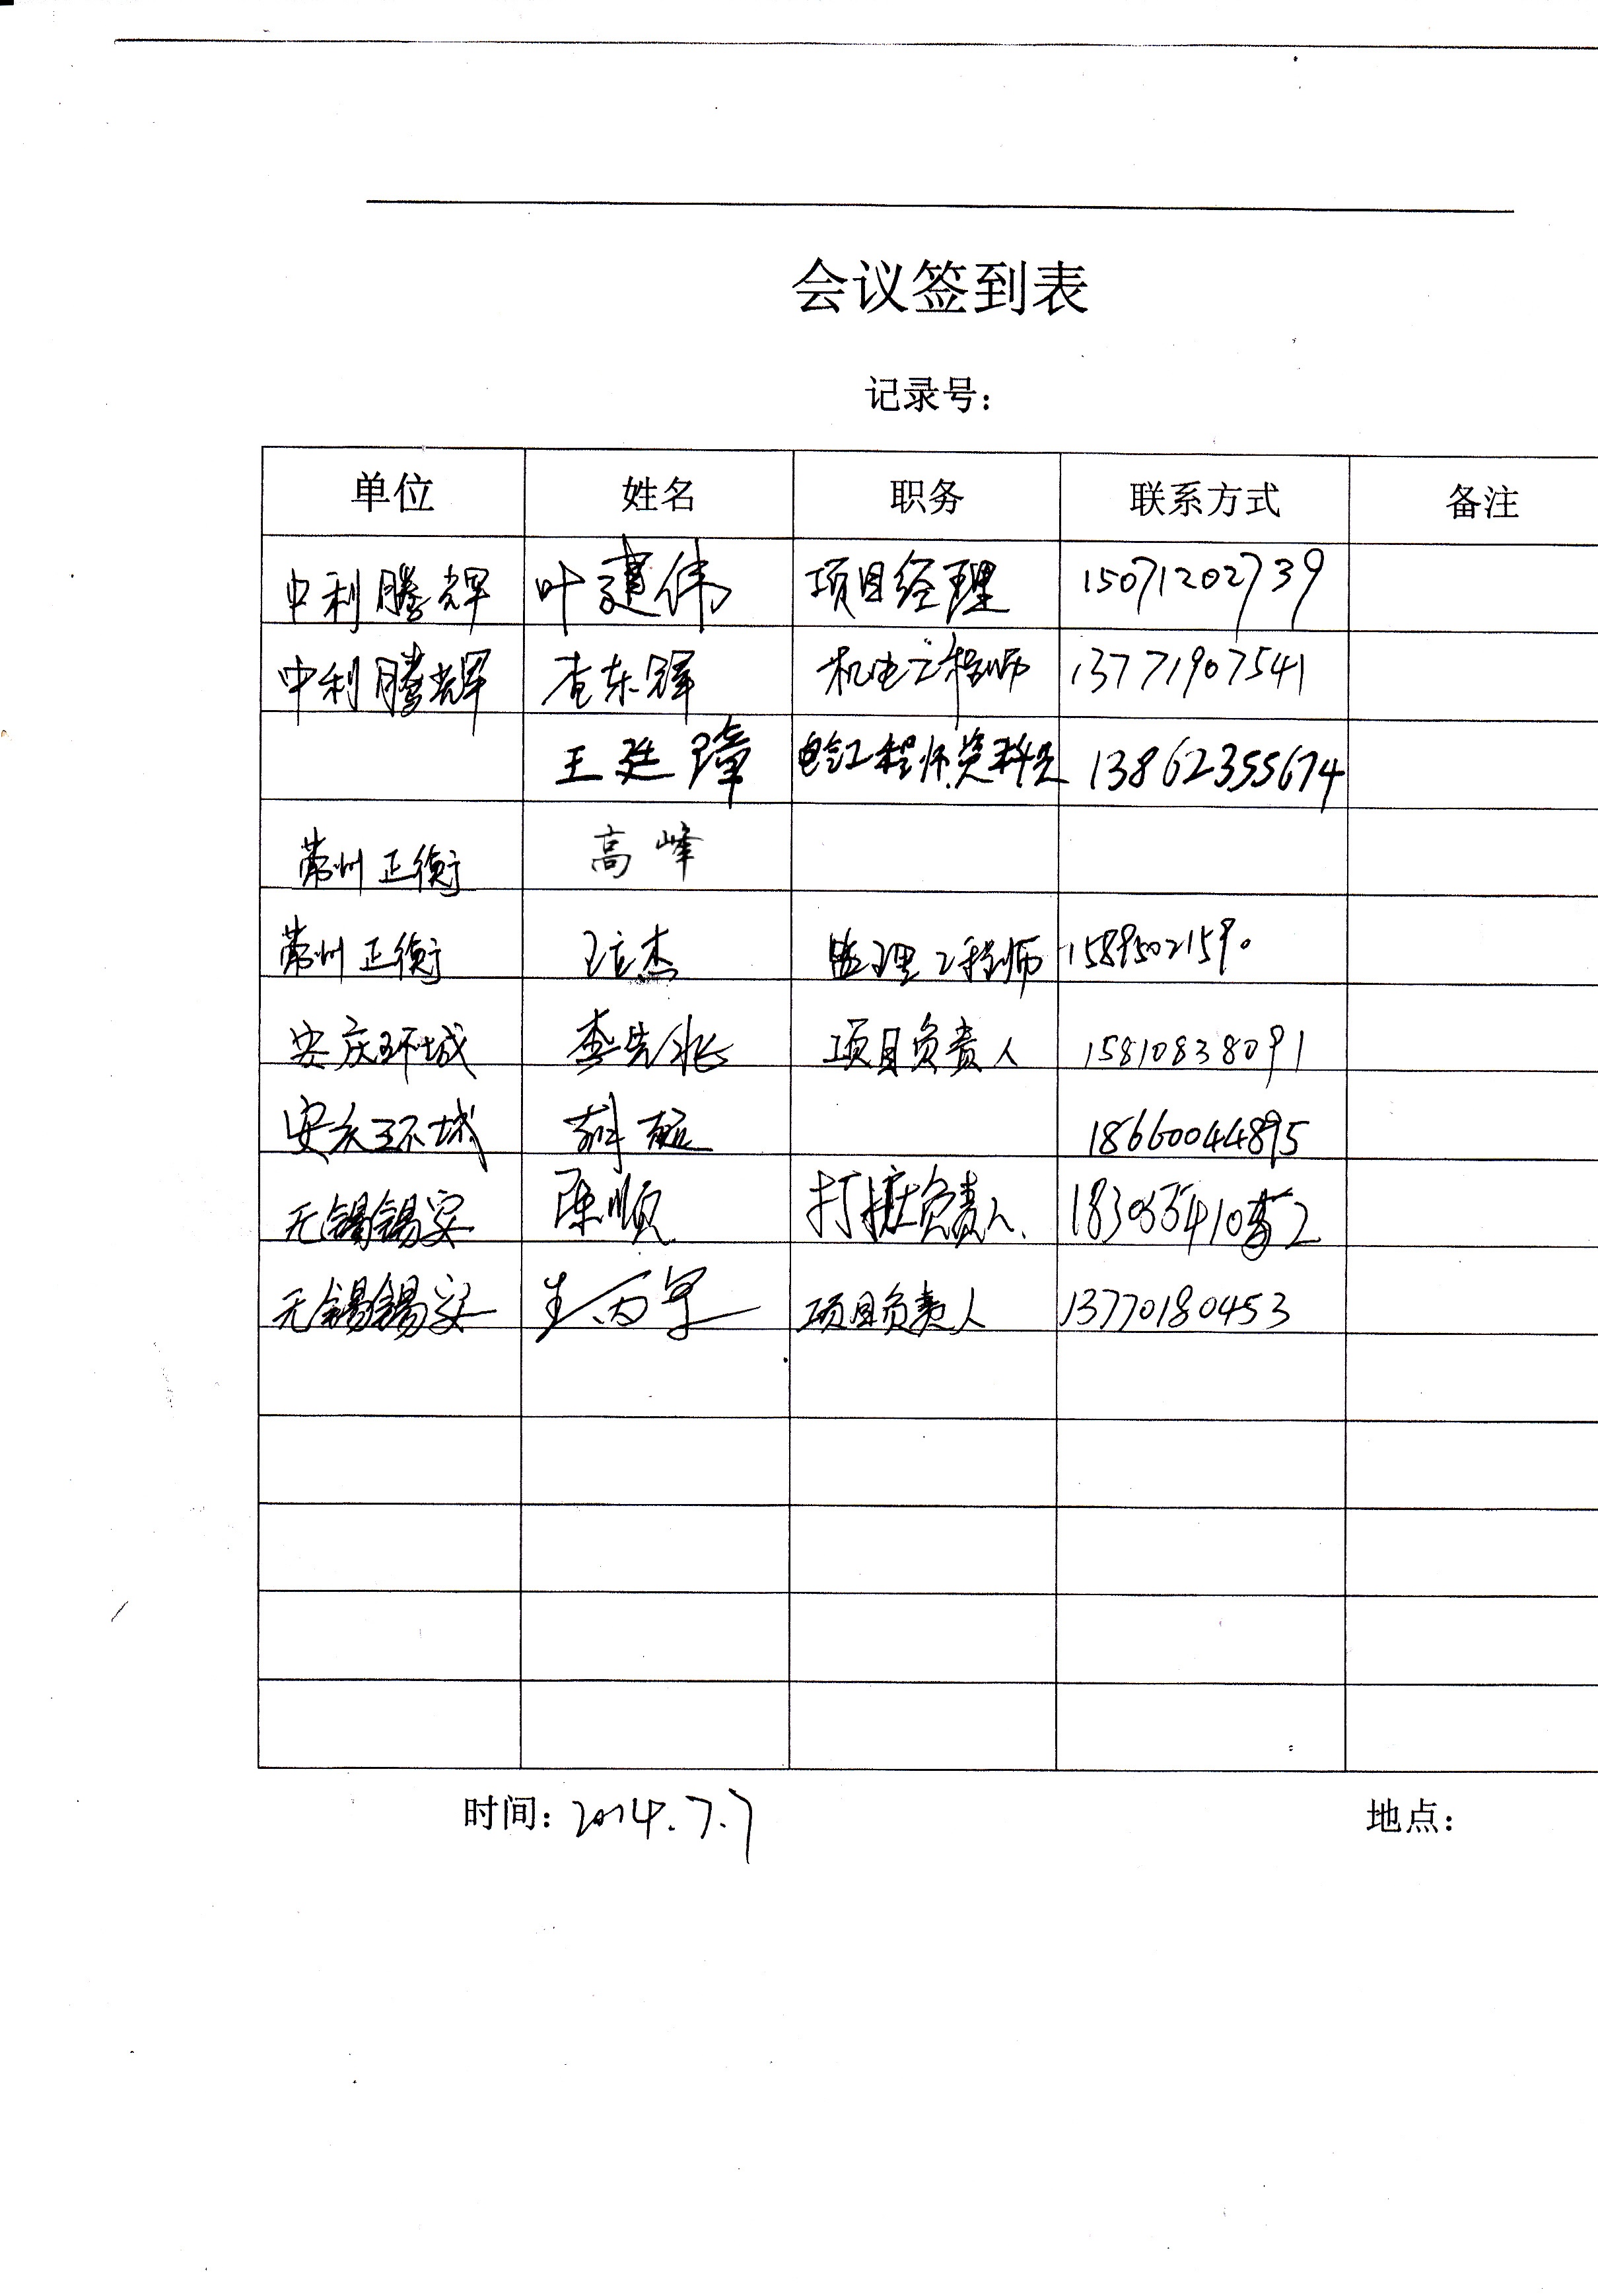 会议签到表
记录号：
单位 姓名 职务 联系方式 备注
中利腾辉 叶建伟 项目经理 15071202739
中利腾辉 查东辉 机电工程师 13771907541
王廷璋 工程师资料员 13862355674
常州正衡 高峰
常州正衡 杰 监理工程师 15895021590
安庆环城 李先兆 项目负责人 15810838091
安庆环城 18660044895
无锡锡安 陈顺 打桩负责人
无锡锡安 项目负责人 13770180453
时间：2014.7.7 地点：